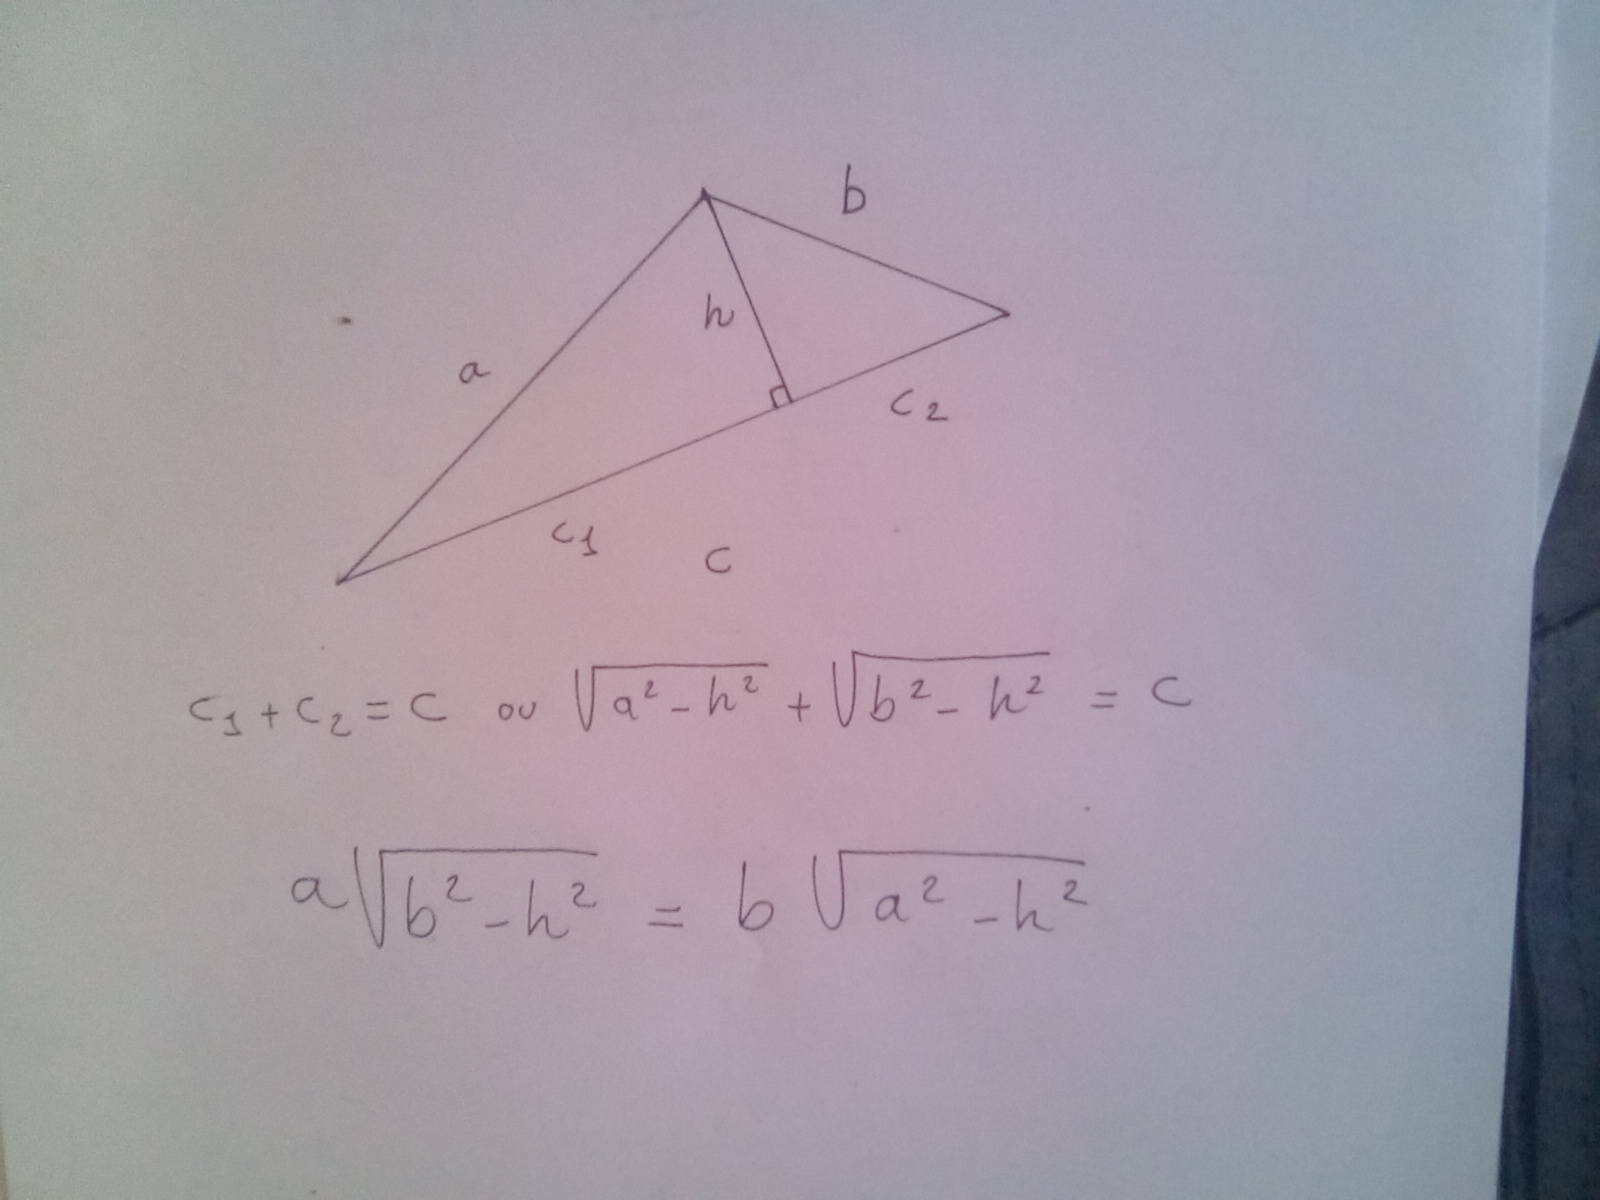 b
h
a
c2
c1
c
c1 + c2 = c ou √(a² - h²) + √(b² - h²) = c
a√(b² - h²) = b√(a² - h²)